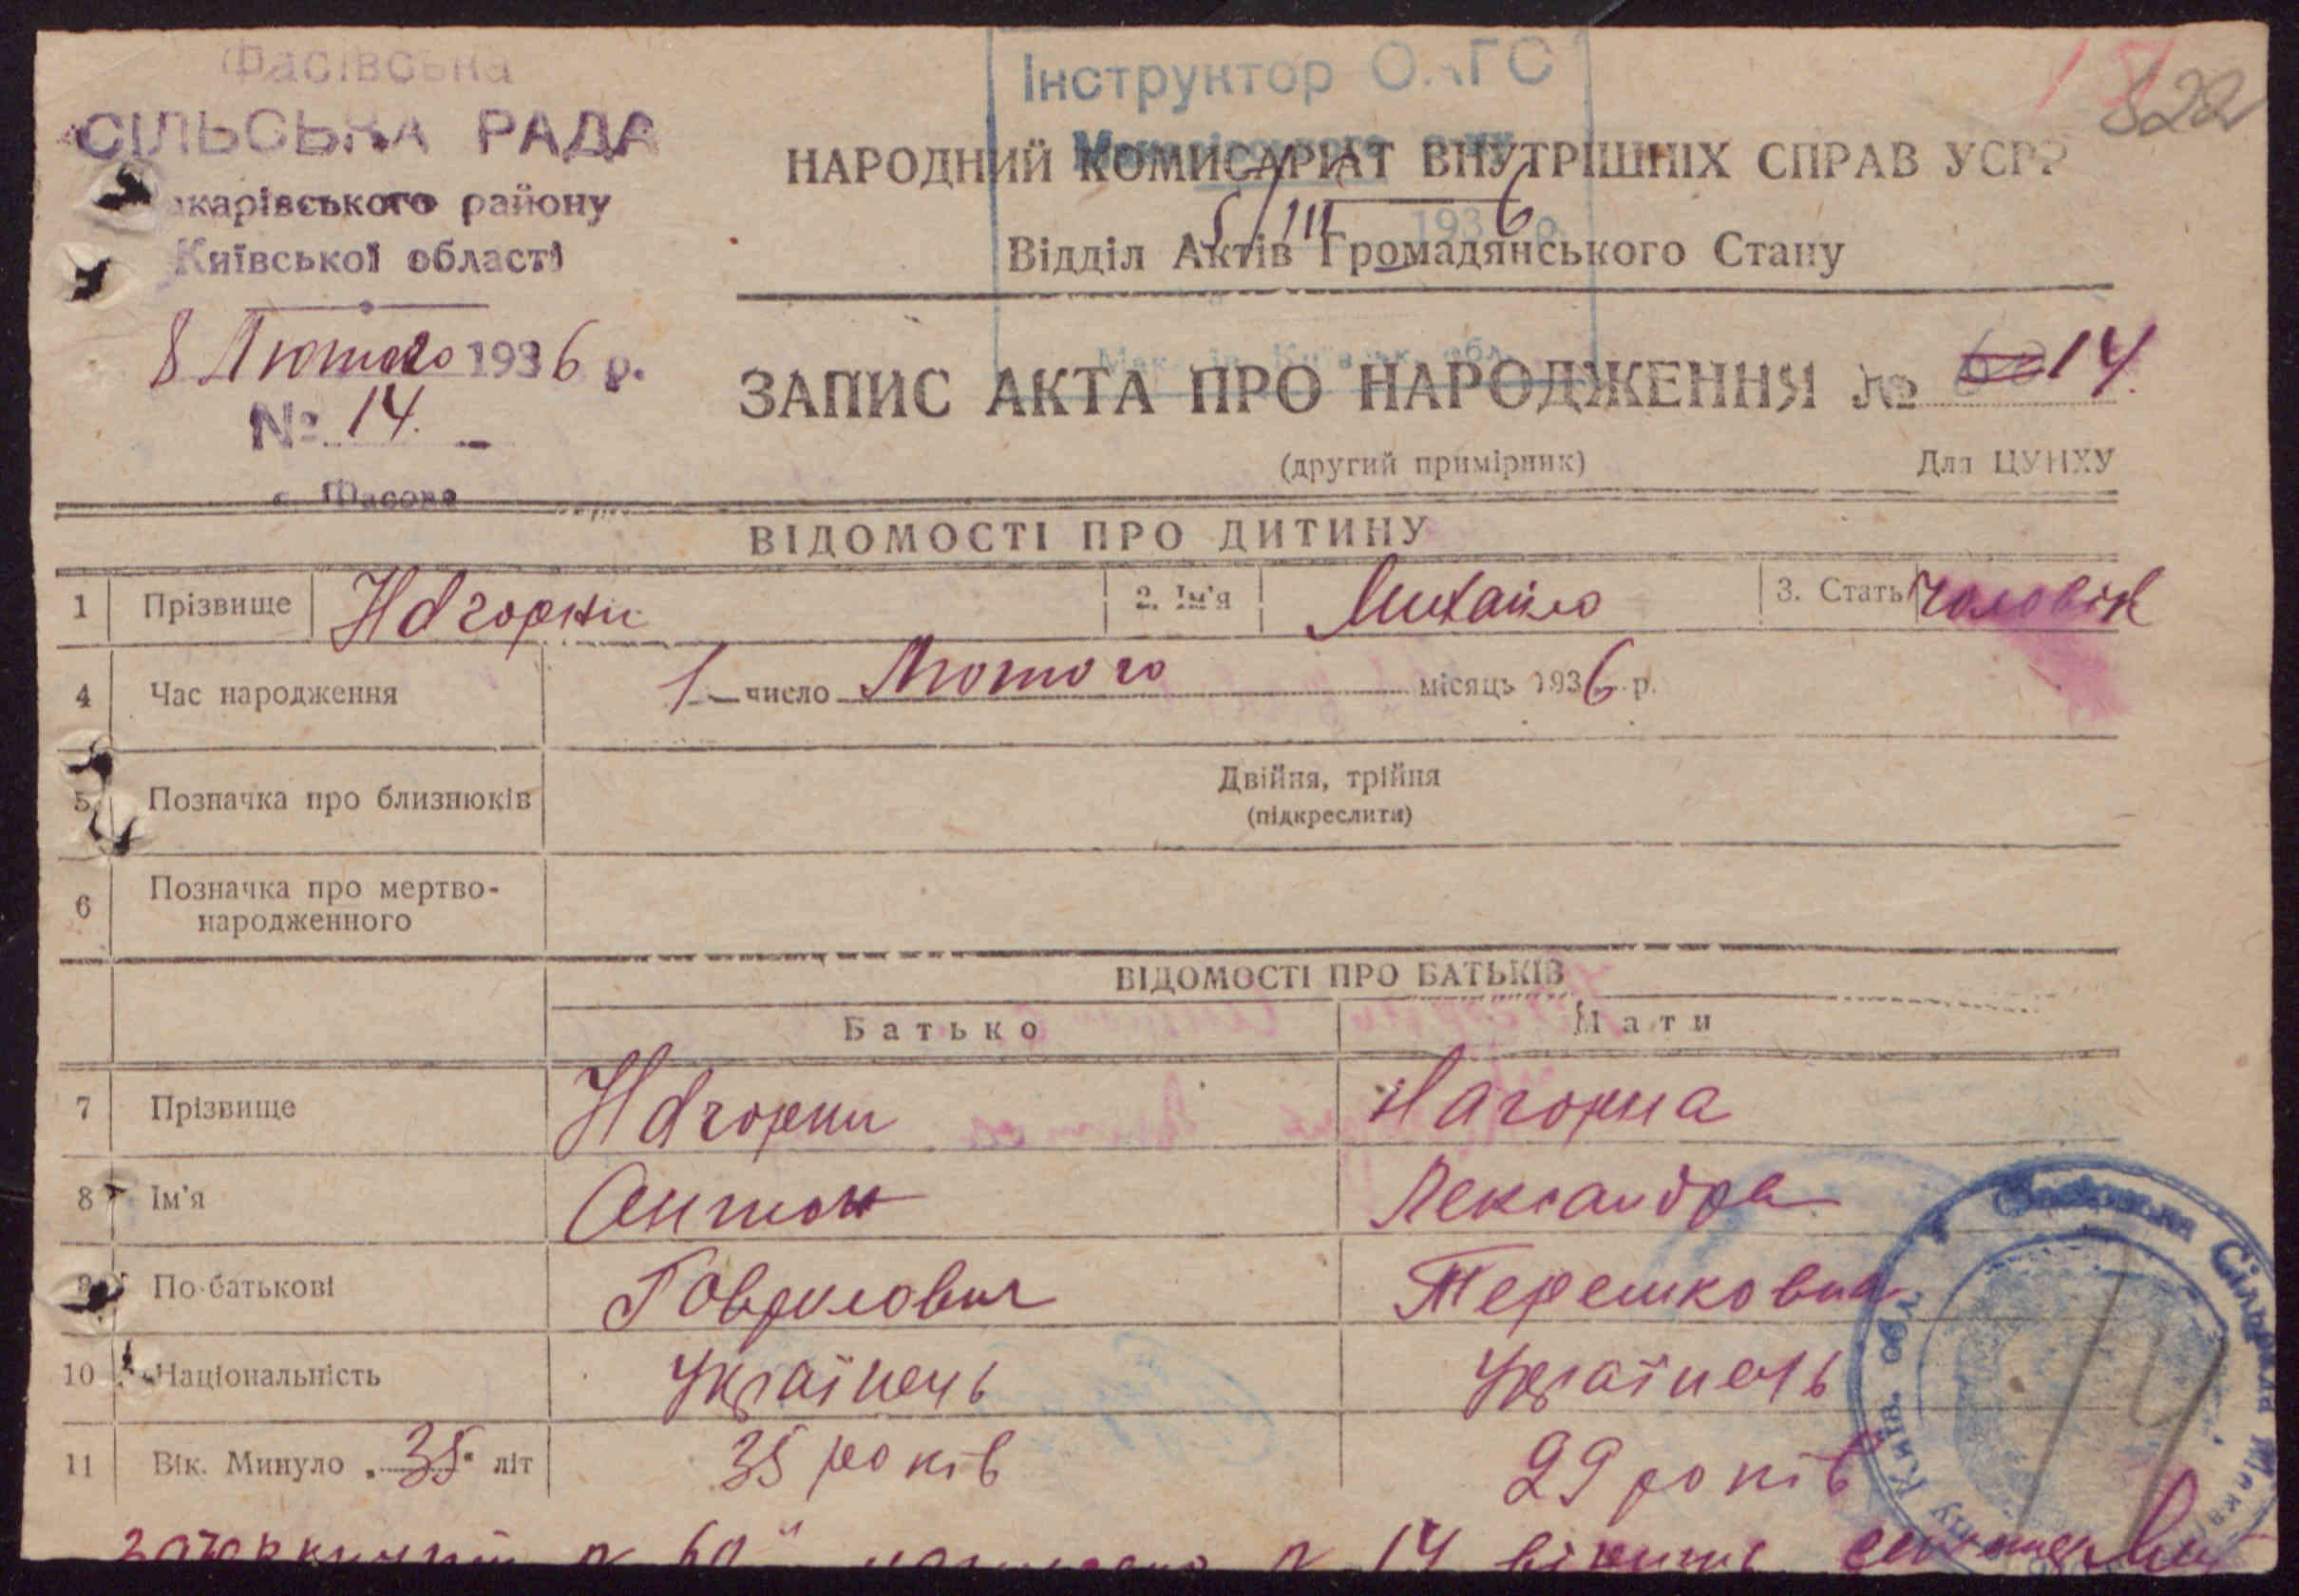 Фасівська
СІЛЬСЬКА РАДА
акарівського району
Київської області
8 Лютого 1936 р.
№ 14.
с. Фасова
Інструктор
5/III 1936 р.
822
НАРОДНИЙ КОМИСАРІАТ ВНУТРІШНІХ СПРАВ УСРР
Відділ Актів Громадянського Стану
ЗАПИС АКТА ПРО НАРОДЖЕННЯ № 60 14.
(другий примірник) Для ЦУНХУ
ВІДОМОСТІ ПРО ДИТИНУ
1 Прізвище Нагорни 2. Ім'я Михайло 3. Стать Чоловік
4 Час народження 1 число Лютого місяць 1936 р.
5 Позначка про близнюків Двійня, трійня
(підкреслити)
6 Позначка про мертво-
народженного
ВІДОМОСТІ ПРО БАТЬКІВ
Батько Мати
7 Прізвище Нагорни Нагорна
8 Ім'я Антон Лександра
9 По-батькові Гаврилович Терешковна
10 Національність Українець Українець
11 Вік. Минуло „35" літ 35 років 29 років
60 14